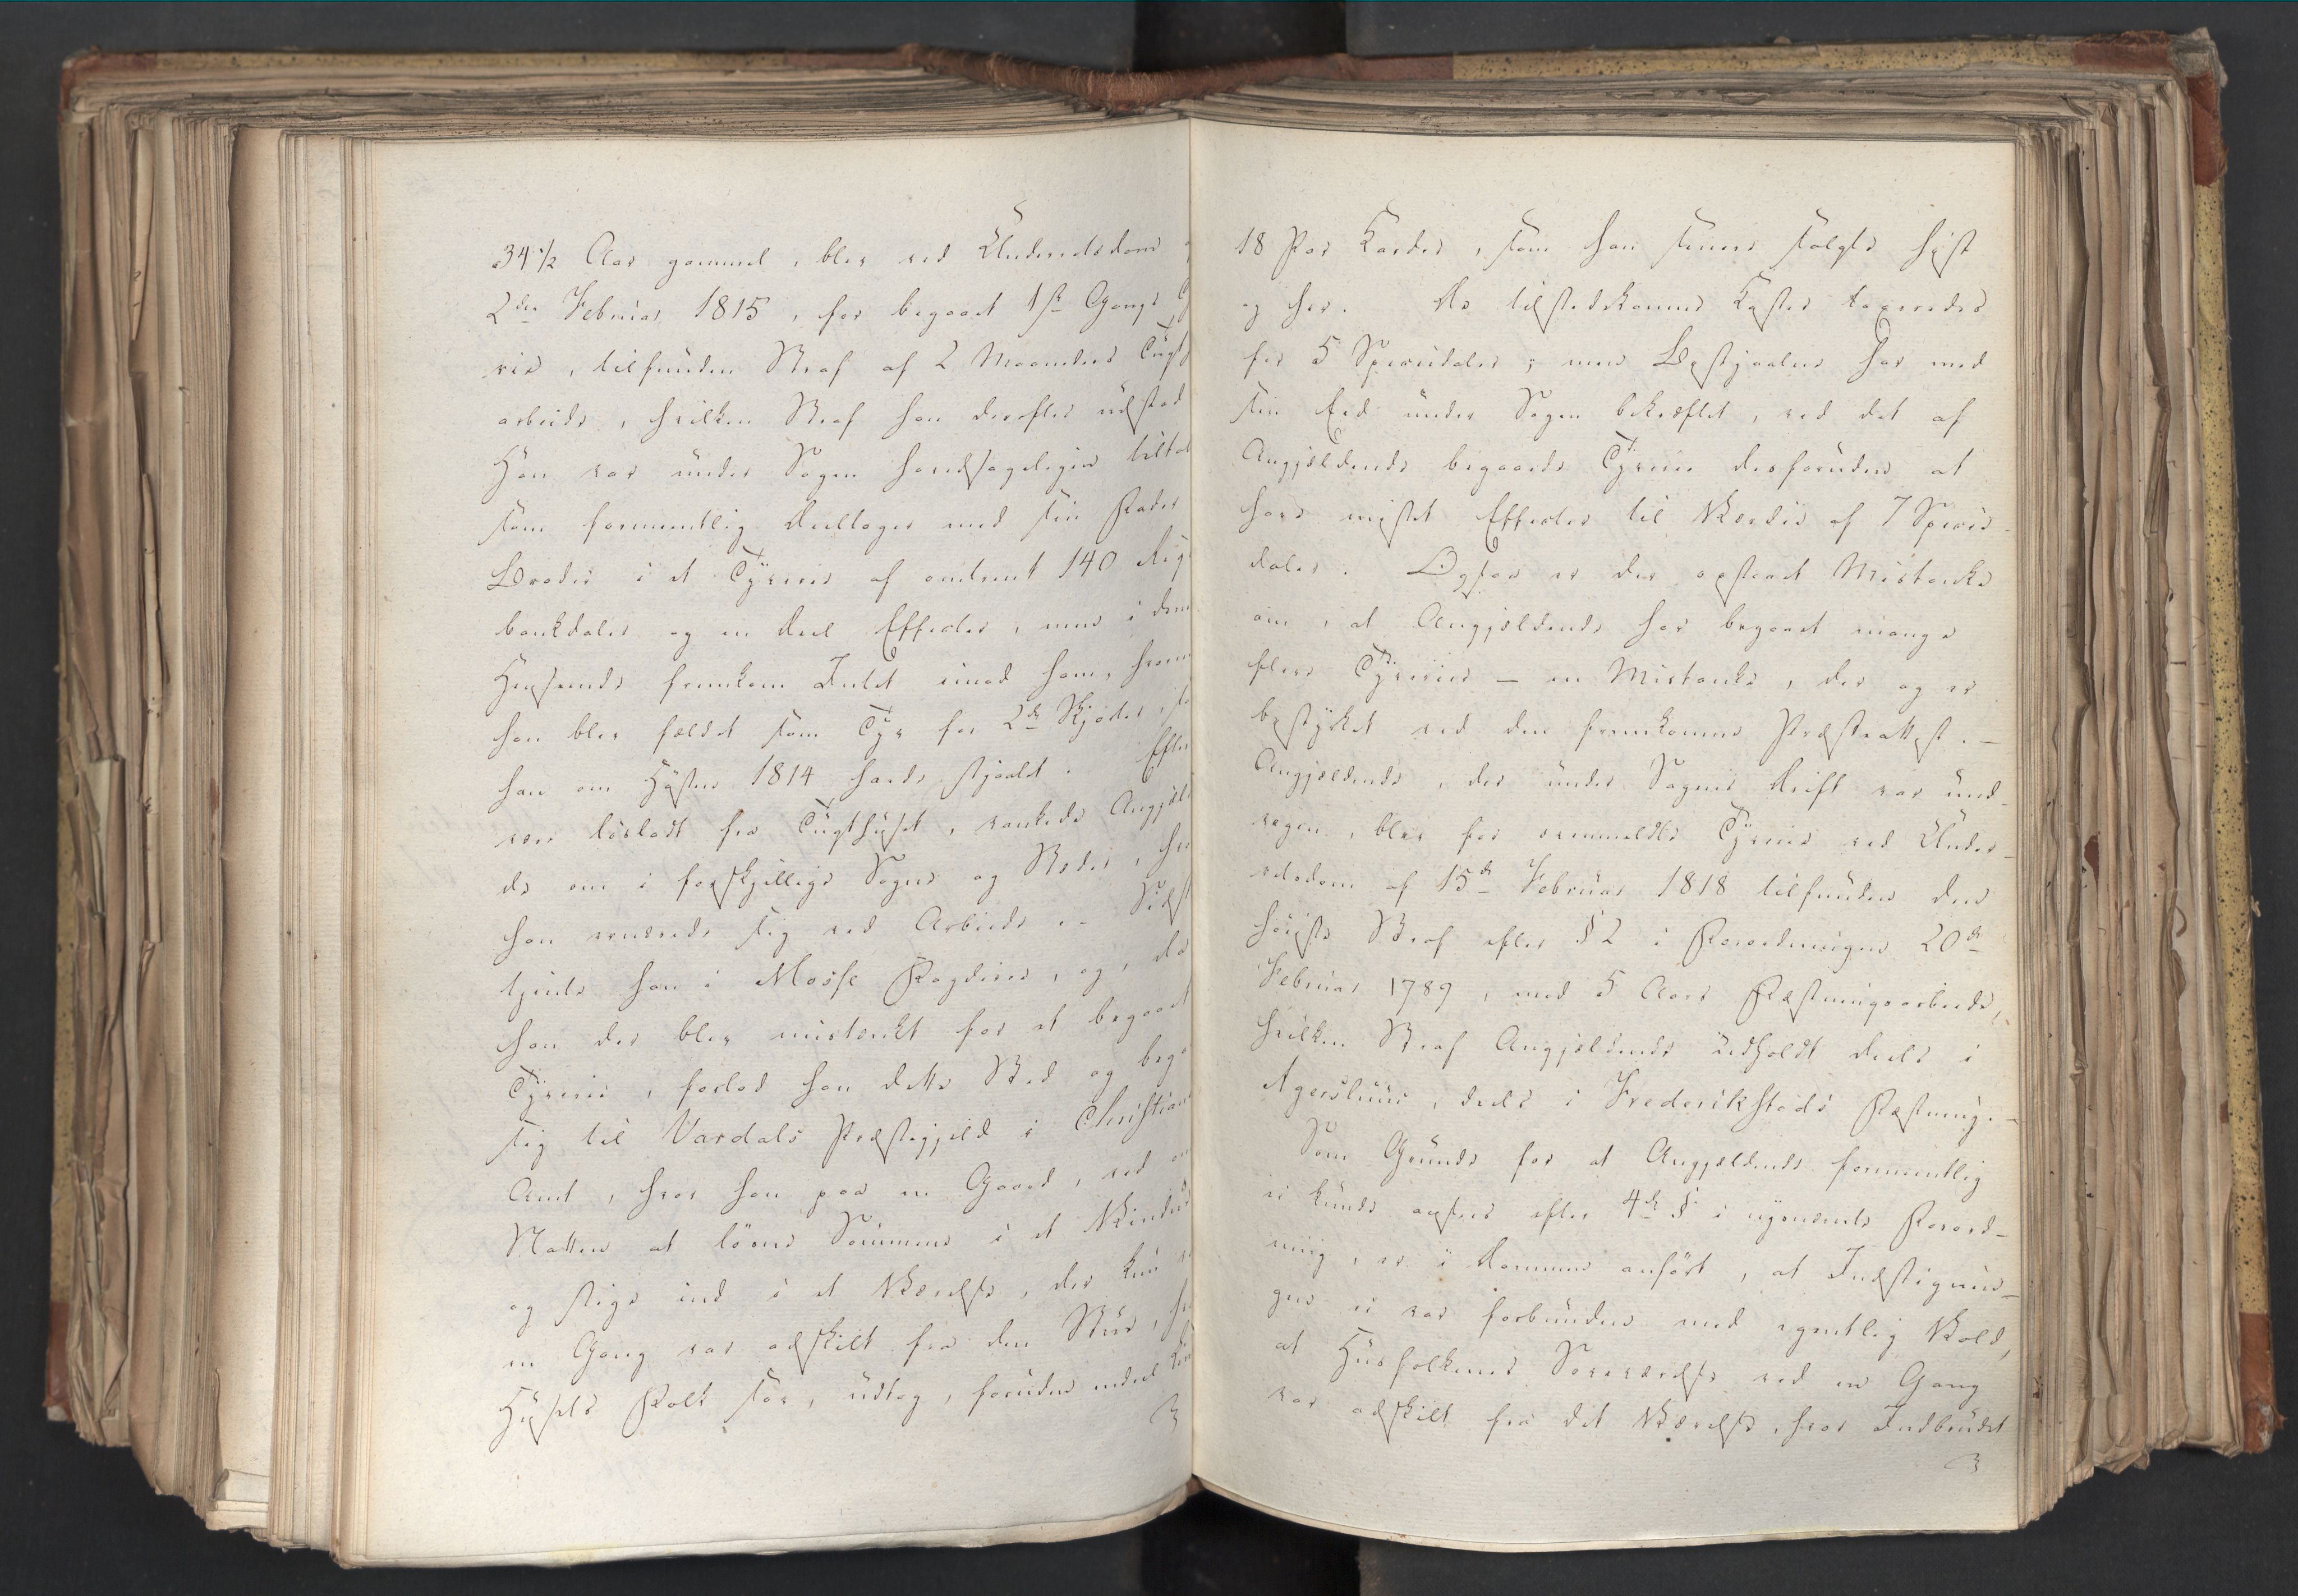 34 1/2 Aar gammel, blev ved Underretsdom
2den Februar 1815, for begaaet 1ste Gangs
rie, tilfunden Straf af 2 Maaneders Tugt
arbeide, hvilken Straf han derefter udstod
Han var under Sagen hovedsageligen tiltal
som formeentlig Deeltager med sin Fader
Broder i et Tyverie af omtrent 140 Rigs
bankdaler og en Deel Effecter, men i denne
Henseende fremkom Intet imod ham, hvorimod
han blev fældet som Tyv for 2de Skjorter, so
han om Høsten 1814 havde stjaalet. Efter
være løsladt fra Tugthuset, vankede Angjæl
de om i forskjellige Sogne og Steder, hvo
han ernærede sig ved Arbeide. - Sidst
tjente han i Mosse Fogderie, og, da
han der blev mistænkt for at begaaet
Tyverie, forlod han dette Sted og bega
sig til Vardals Præstegjeld i Christians
Amt, hvor han paa en Gaard, ved om
Natten at løsne Sømmene i et Vindue
og stige ind i et Værelse, der kun ve
en Gang var adskilt fra den Stue, hvo
Husets Folk sov, udtog, foruden endeel
18 Par Karder, som han senere solgte hist
og her. De tilstedkomne Koster taxeredes
for 5 Speciedaler; men Bestjaalne har med
sin Eed under Sagen bekræftet, ved det af
Angjældende begaaede Tyverie desforuden at
have mistet Effecter til Værdie af 7 Specie-
daler. Ogsaa er der opstaaet Mistanke
om, at Angjældende har begaaet mange
flere Tyverier - en Mistanke, der og er
bestyrket ved den fremkomne Præsteattest. -
Angjældende, der under Sagens Drift var und-
vegen, blev for ommeldte Tyverie ved Under-
retsdom af 15de Februar 1818 tilfunden den
høieste Straf efter § 2 i Forordningen 20de
Februar 1789, med 5 Aars Fæstningsarbeide,
hvilken Straf Angjældende udholdt deels i
Agershuus, deels i Frederikstads Fæstning. -
Som Grunde for at Angjældende formeentlig
ei kunde ansees efter 4de § i nysnævnte Forord-
ning, er i Dommen anført, at Indstignin-
gen ei var forbunden med egentlig Vold,
at Huusfolkenes Soveværelse ved en Gang
var adskilt fra det Værelse, hvor Indbrudet